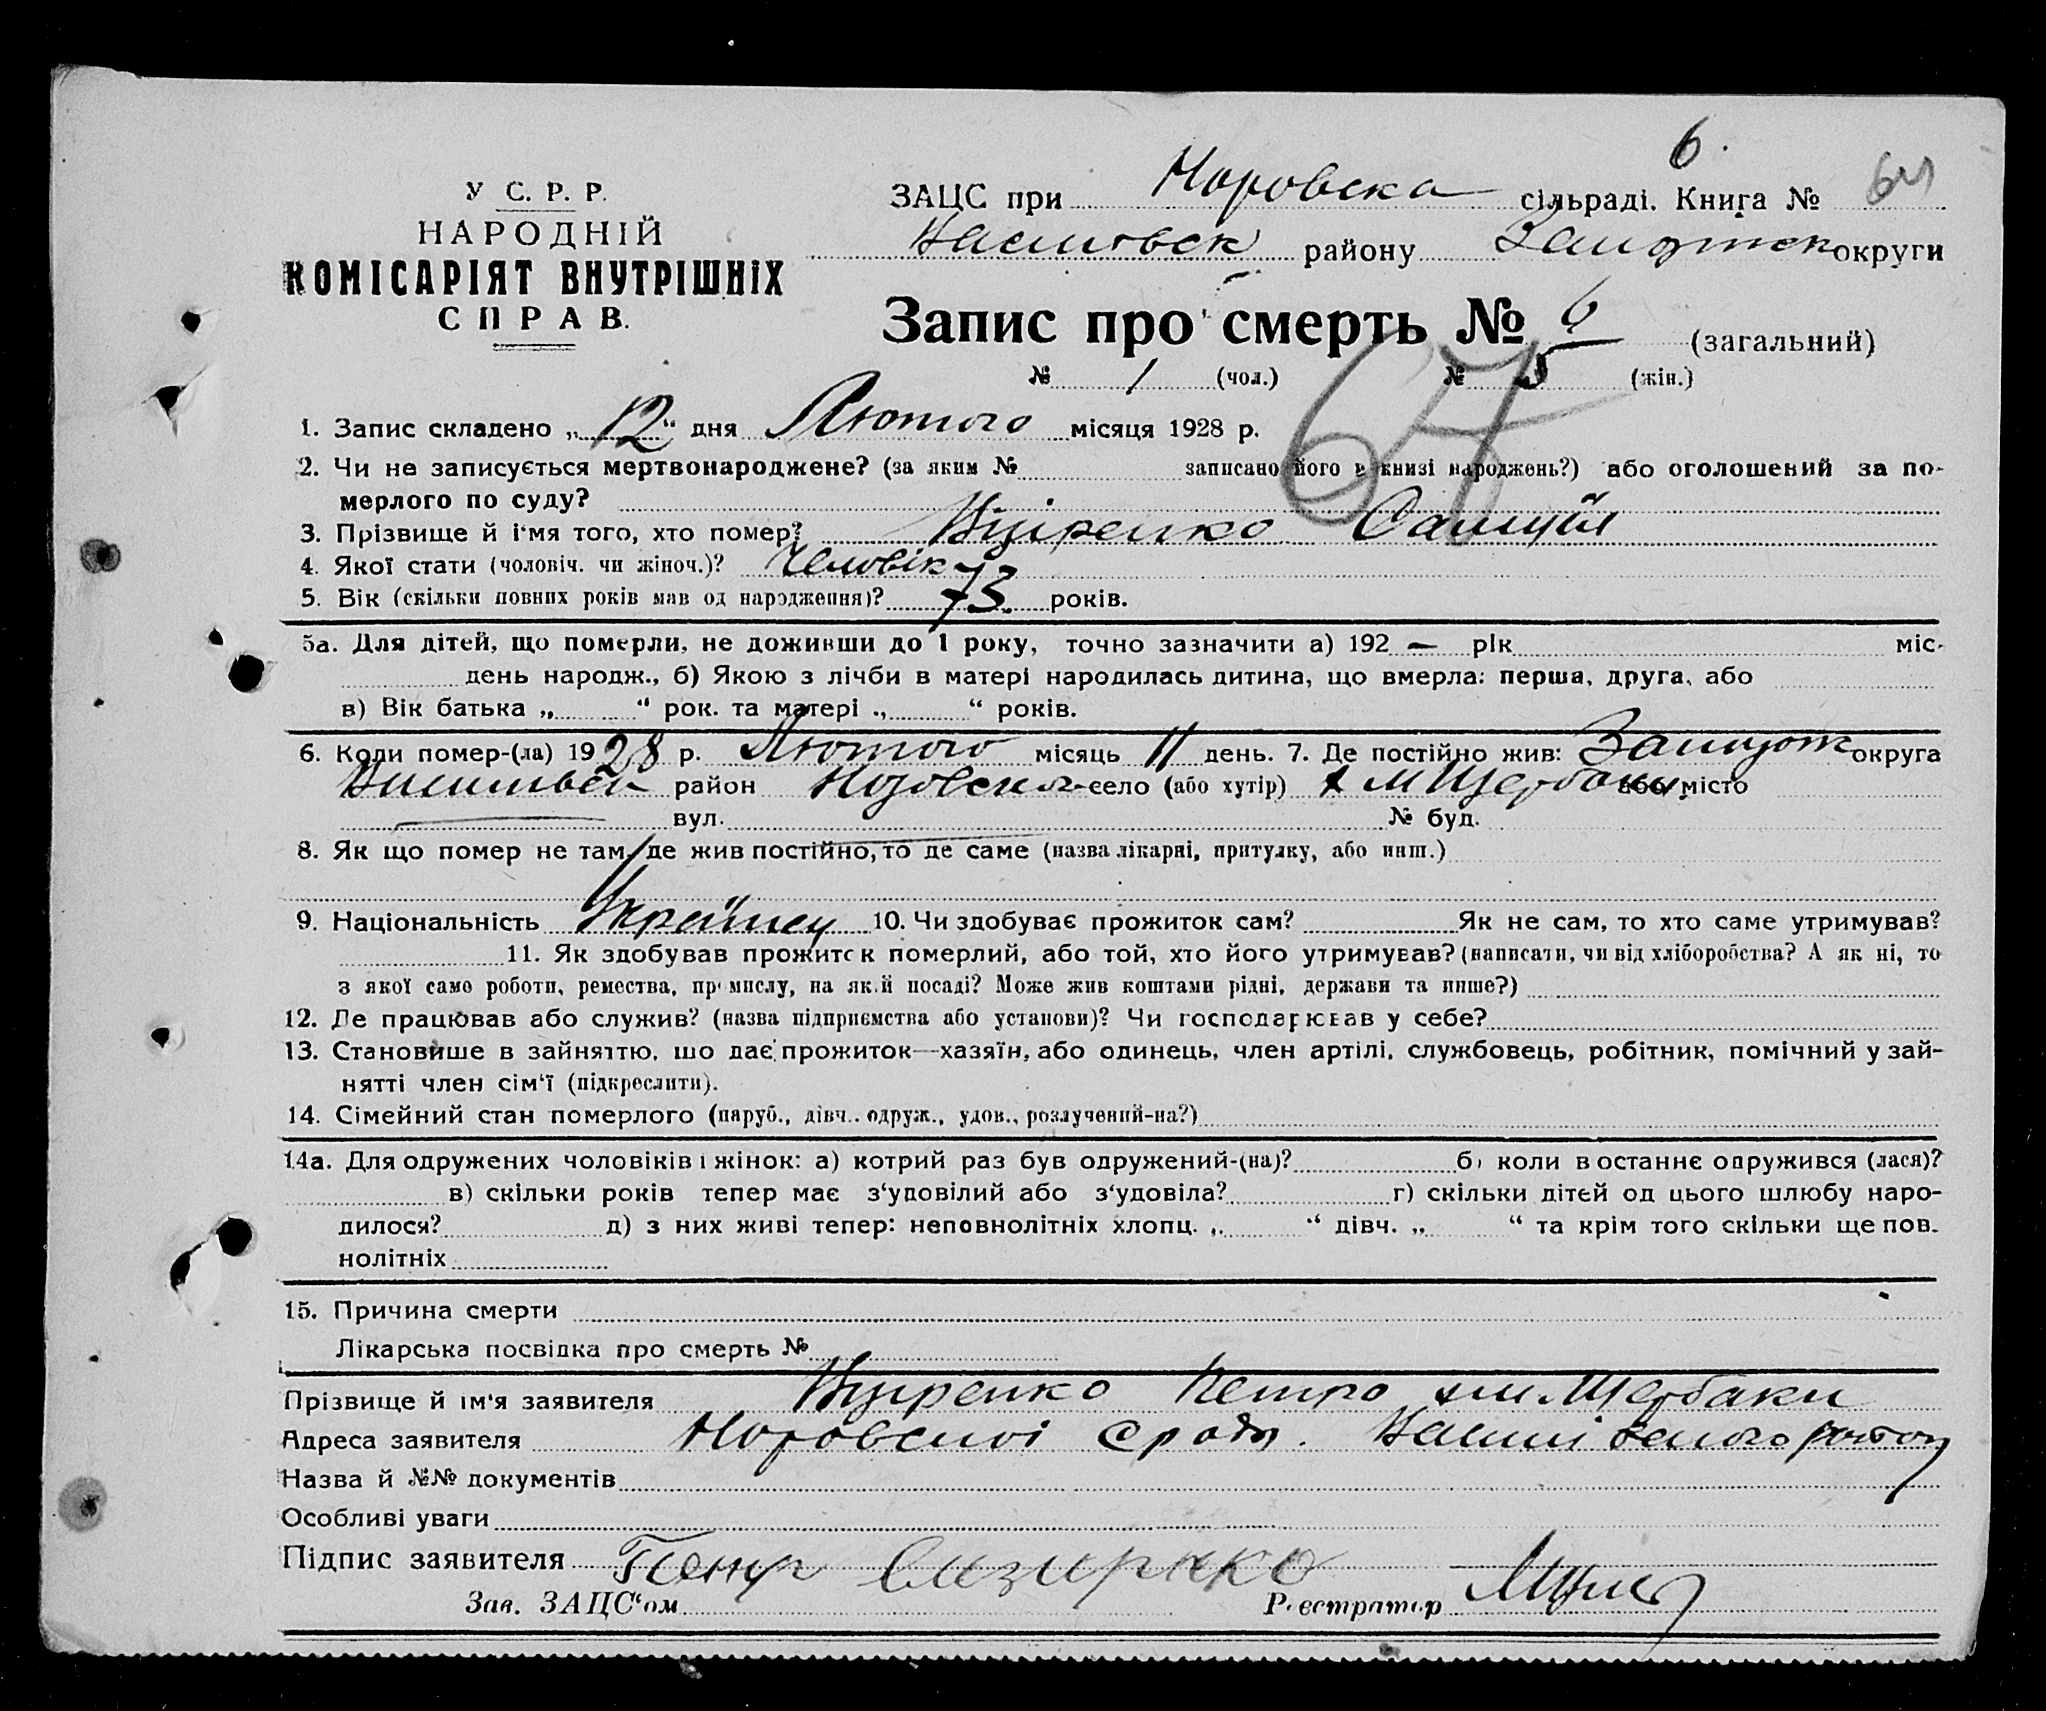 6.
У С. Р. Р.
НАРОДНІЙ
КОМІСАРІЯТ ВНУТРІШНІХ
СПРАВ.
ЗАЦС при сільраді. Книга № 64
району округи
Запис про смерть № 6 (загальний)
№ 1 (чол.) № 5 (жін.)
64
1. Запис складено „12“ дня Лютого місяця 1928 р.
2. Чи не записується мертвонароджене? (за яким № записано його в книзі народжень?) або оголошений за по-
мерлого по суду?
3. Прізвище й і'мя того, хто помер? Самуїл
4. Якої стати (чоловіч. чи жіноч.)? Человік
5. Вік (скільки повних років мав од народження)? 73 років.
5а. Для дітей, що померли, не доживши до 1 року, точно зазначити а) 192 — рік міс.
день народж., б) Якою з лічби в матері народилась дитина, що вмерла: перша, друга, або
в) Вік батька „ “ рок. та матері „ “ років.
6. Коли помер-(ла) 1928 р. Лютого місяць 11 день. 7. Де постійно жив: округа
район село (або хутір) х М Щербаки або місто
вул. № буд.
8. Як що помер не там, де жив постійно, то де саме (назва лікарні, притулку, або инш.)
9. Національність Українец 10. Чи здобуває прожиток сам? Як не сам, то хто саме утримував?
11. Як здобував прожиток померлий, або той, хто його утримував? (написати, чи від хліборобства? А як ні, то
з якої само роботи, ремества, промислу, на якій посаді? Може жив коштами рідні, держави та инше?)
12. Де працював або служив? (назва підприємства або установи)? Чи господарював у себе?
13. Становище в зайняттю, що дає прожиток—хазяїн, або одинець, член артілі, службовець, робітник, помічний у зай-
нятті член сім'ї (підкреслити).
14. Сімейний стан померлого (паруб., дівч., одруж., удов., розлучений-на?)
14а. Для одружених чоловіків і жінок: а) котрий раз був одружений-(на)? б) коли в останнє одружився (лася)?
в) скільки років тепер має з'удовілий або з'удовіла? г) скільки дітей од цього шлюбу наро-
дилося? д) з них живі тепер: неповнолітніх хлопц. „ “ дівч. „ “ та крім того скільки ще пов.
нолітніх
15. Причина смерти
Лікарська посвідка про смерть №
Прізвище й ім'я заявителя Петро хм Щербаки
Адреса заявителя
Назва й №№ документів
Особливі уваги
Підпис заявителя
Зав. ЗАЦС'ом Реєстратор